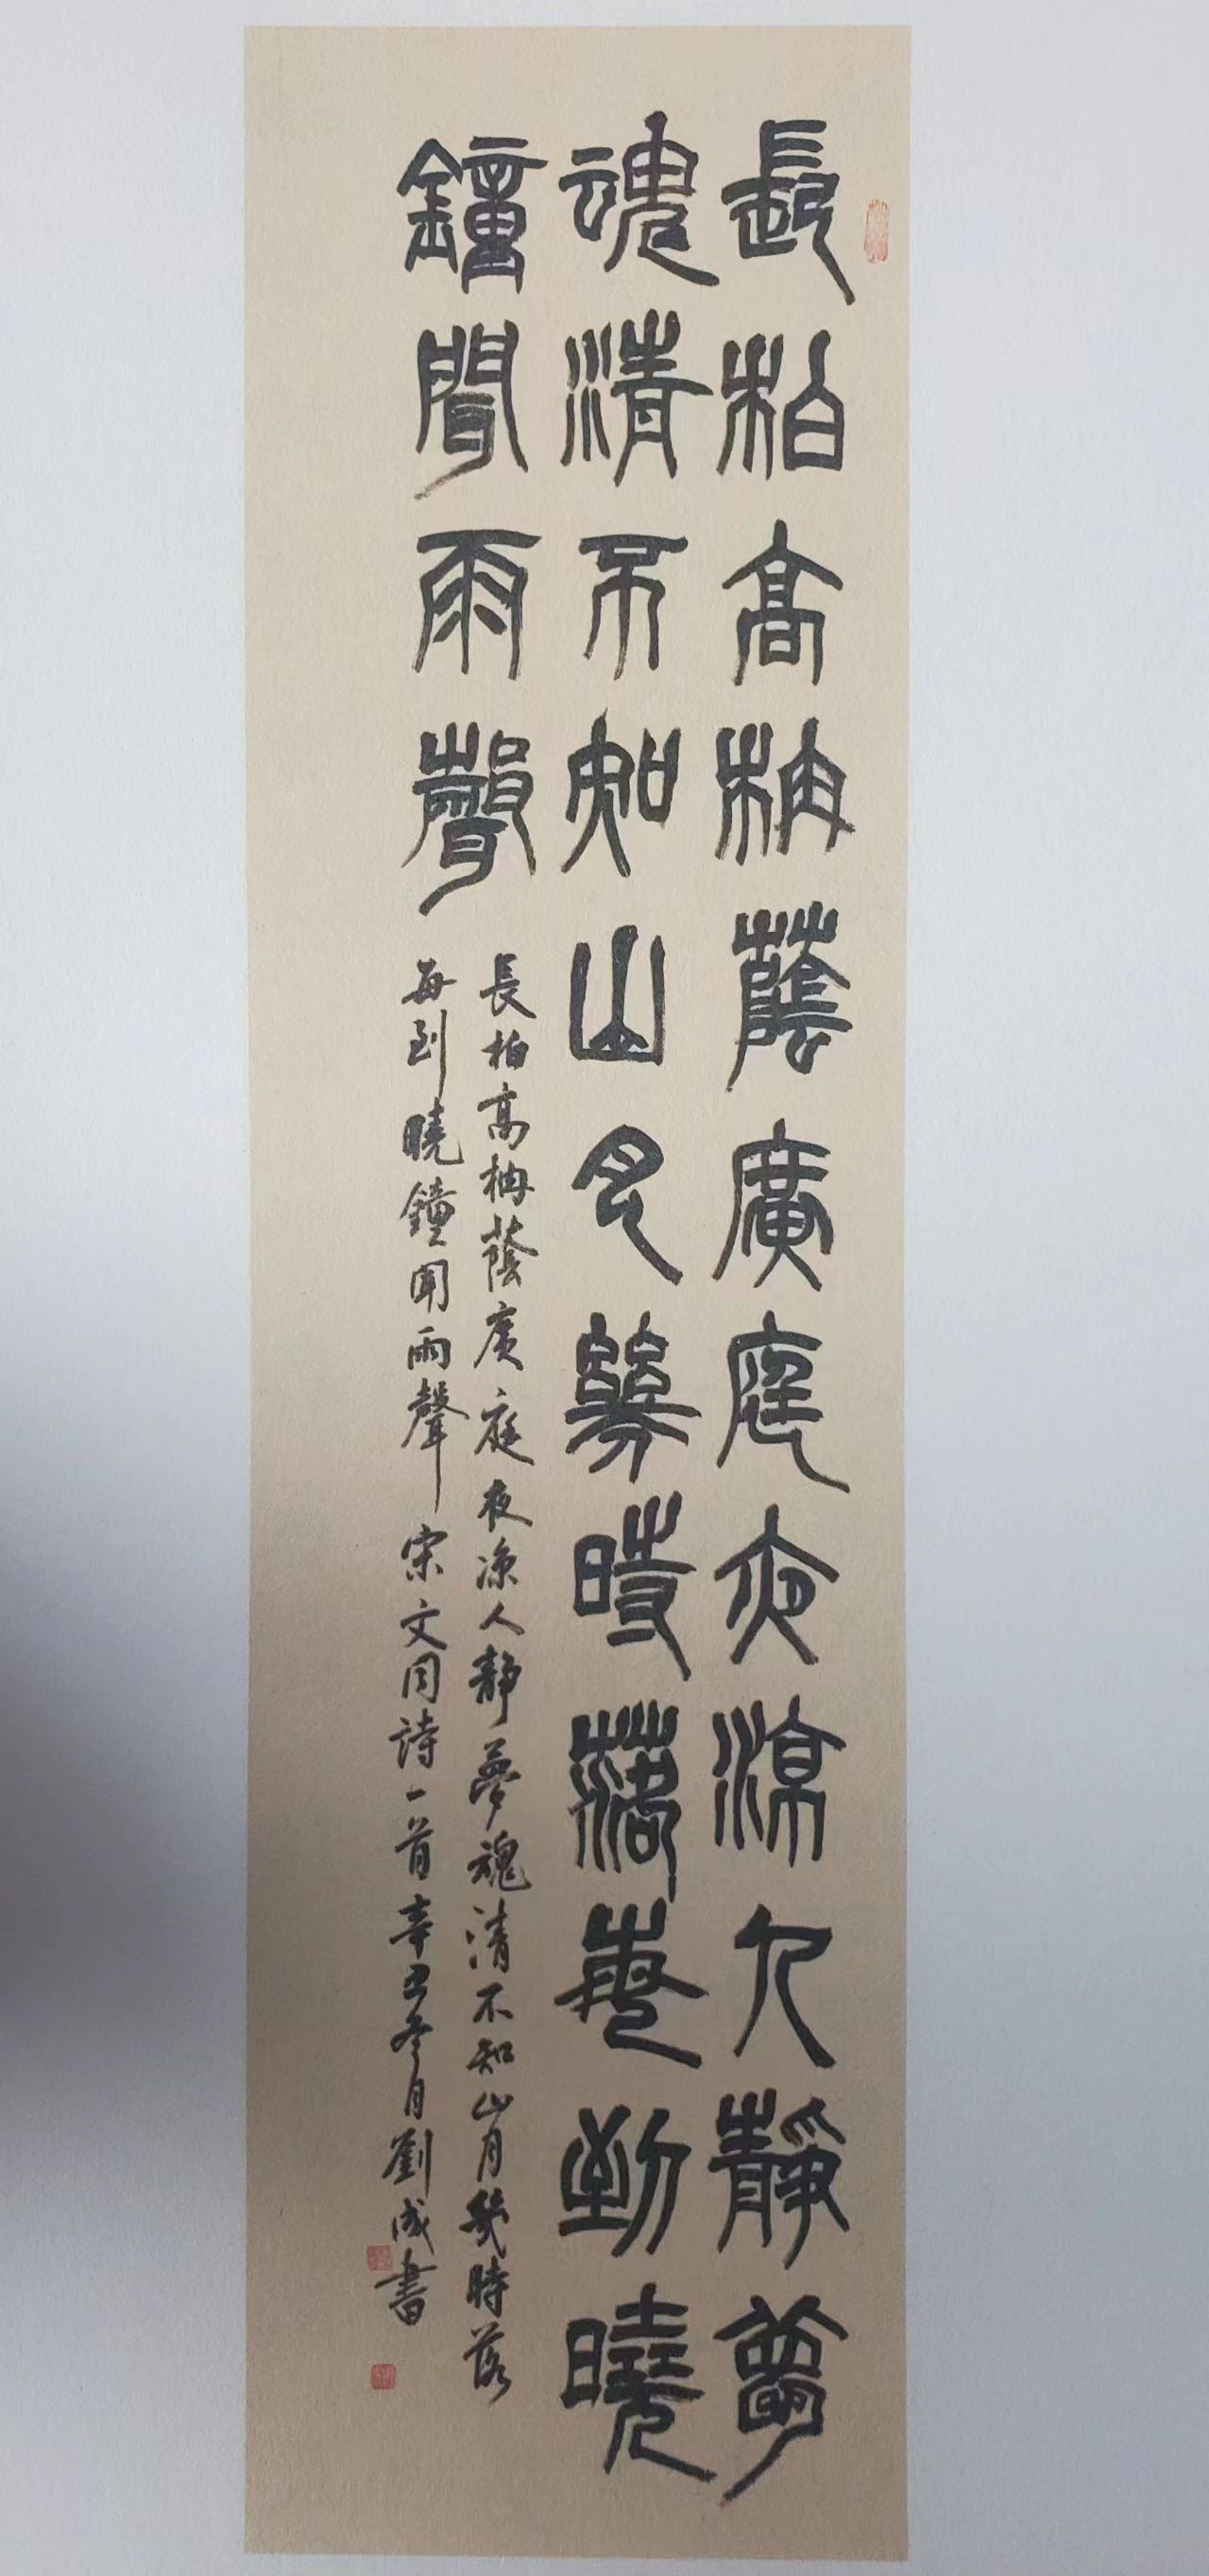 長柏高枬蔭廣庭夜涼人靜夢
魂清不知山月幾時落每到曉
鐘聞雨聲
長柏高枬蔭廣庭夜涼人靜夢魂清不知山月幾時落
每到曉鐘聞雨聲宋文同詩一首辛丑冬月劉成書